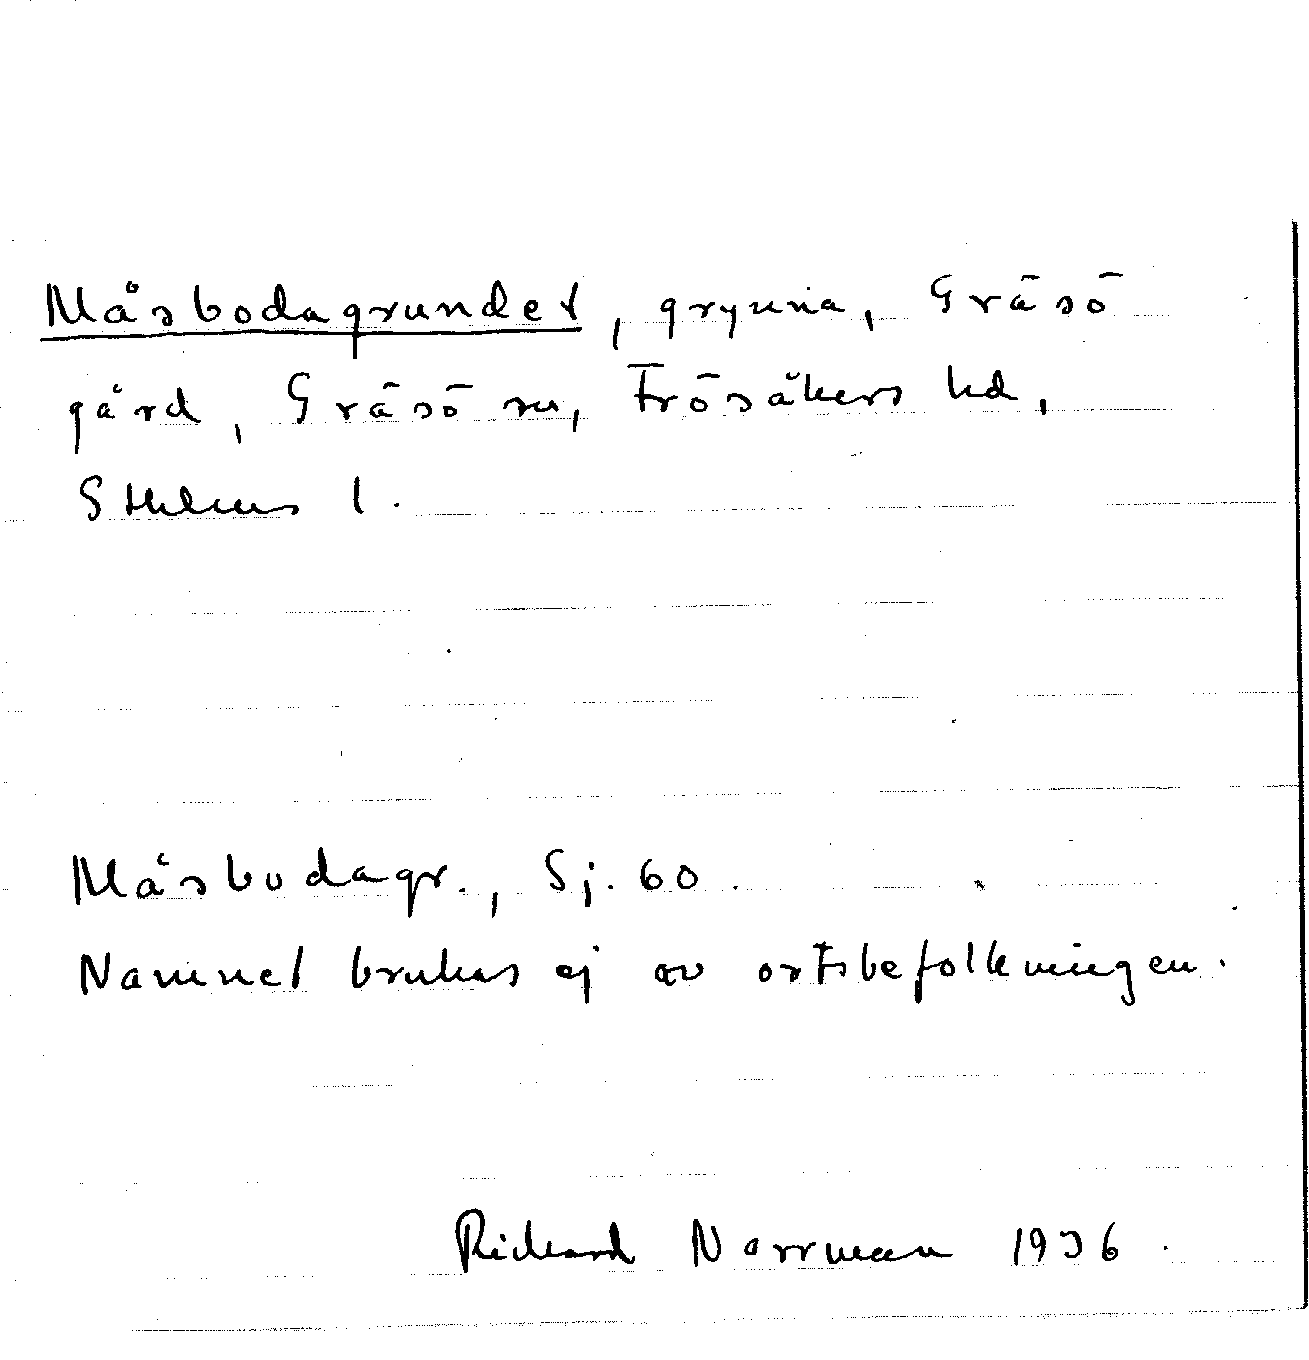 Måsbodagrundet, grynna, Gräsö
gård, Gräsö sn, Frösåkers hd,
Sthlms l.
Måsbodagr., Sj. 60.
Namnet brukas ej av ortsbefolkningen.
Richard Norrman 1936.